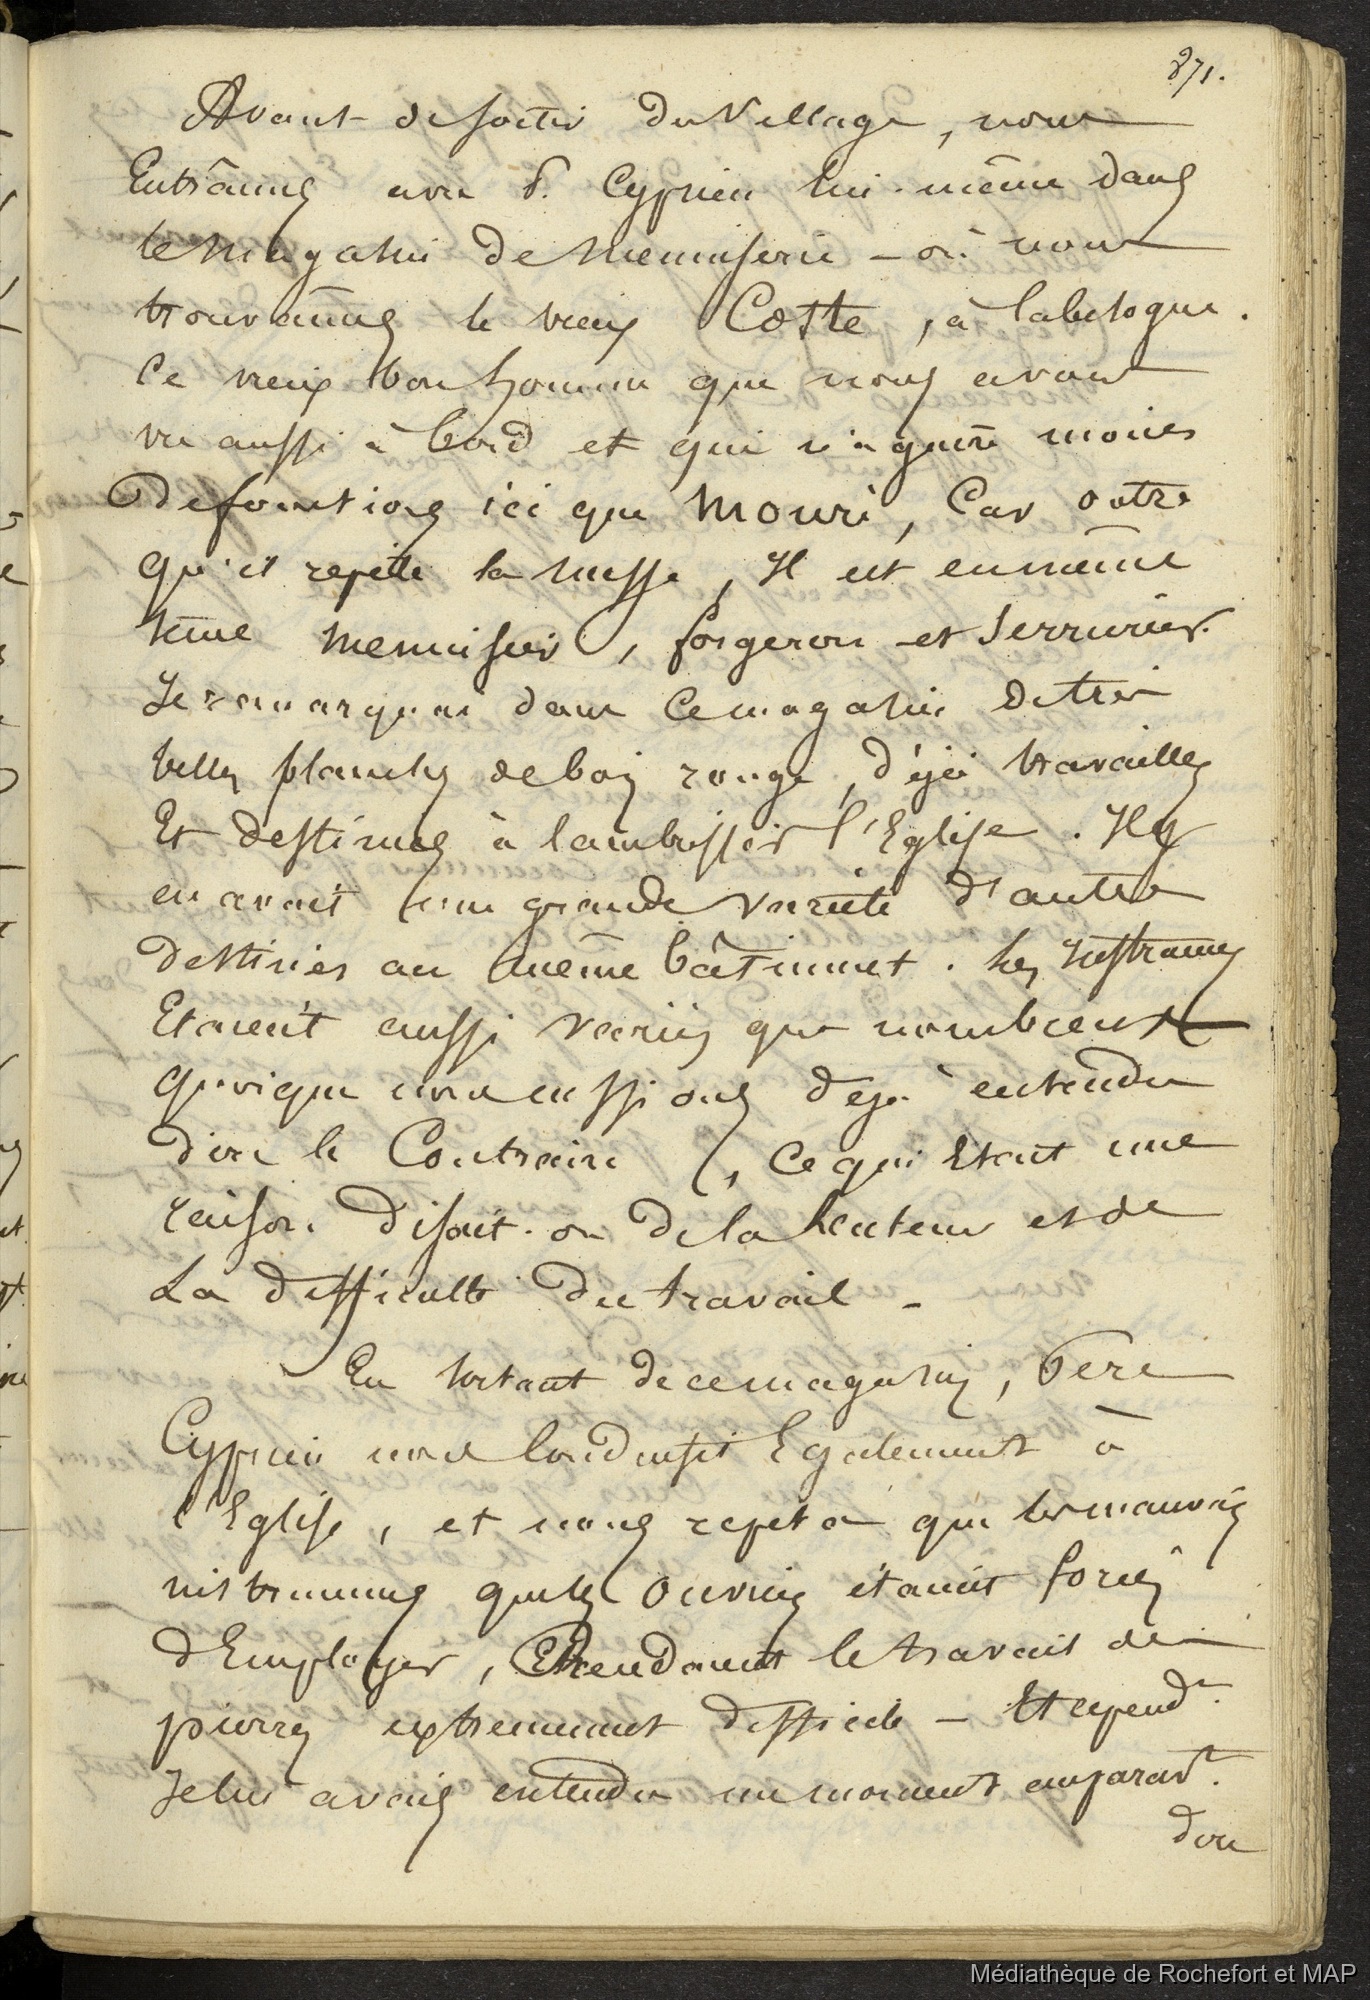 871.
Avant de sortir du Village, nous
Entrâmes avec P. Cyprien lui-même dans
le magasin de menuiserie - où nous
trouvâmes le vieux Coste, à
Ce vieux bonhomme que nous avons
vu aussi à bord et qui n'a guère moins
de fonctions ici que Mouri, Car outre
qu'il repette la messe, Il est en même
tems menuisier, forgeron et Serrurier.
Je remarquai dans ce magasin de très
belles planches de bois rouge, déjà travaillés
Et destinées à lambrisser l'Eglise. Il y
en avait une grande variété d'autres
destinés au même bâtiment. les Instrumes
Etaient aussi variés que nombreux
quoique nous eussions déjà entendu
dire le Contraire, Ce qui Etait une
raison disait-on de la lenteur et de
La difficulté du travail -
En sortant de ce magasin, Père
Cyprien nous Conduisit Egalement à
l'Eglise, et nous repeta que les mauvais
instrumens que les Ouvriers étaient forcés
d'Employer, Rendaient le travail des
pierres extremement difficile - Et cepend.t
Je lui avais entendu un moment auparav.t
dire
Médiathèque de Rochefort et MAP